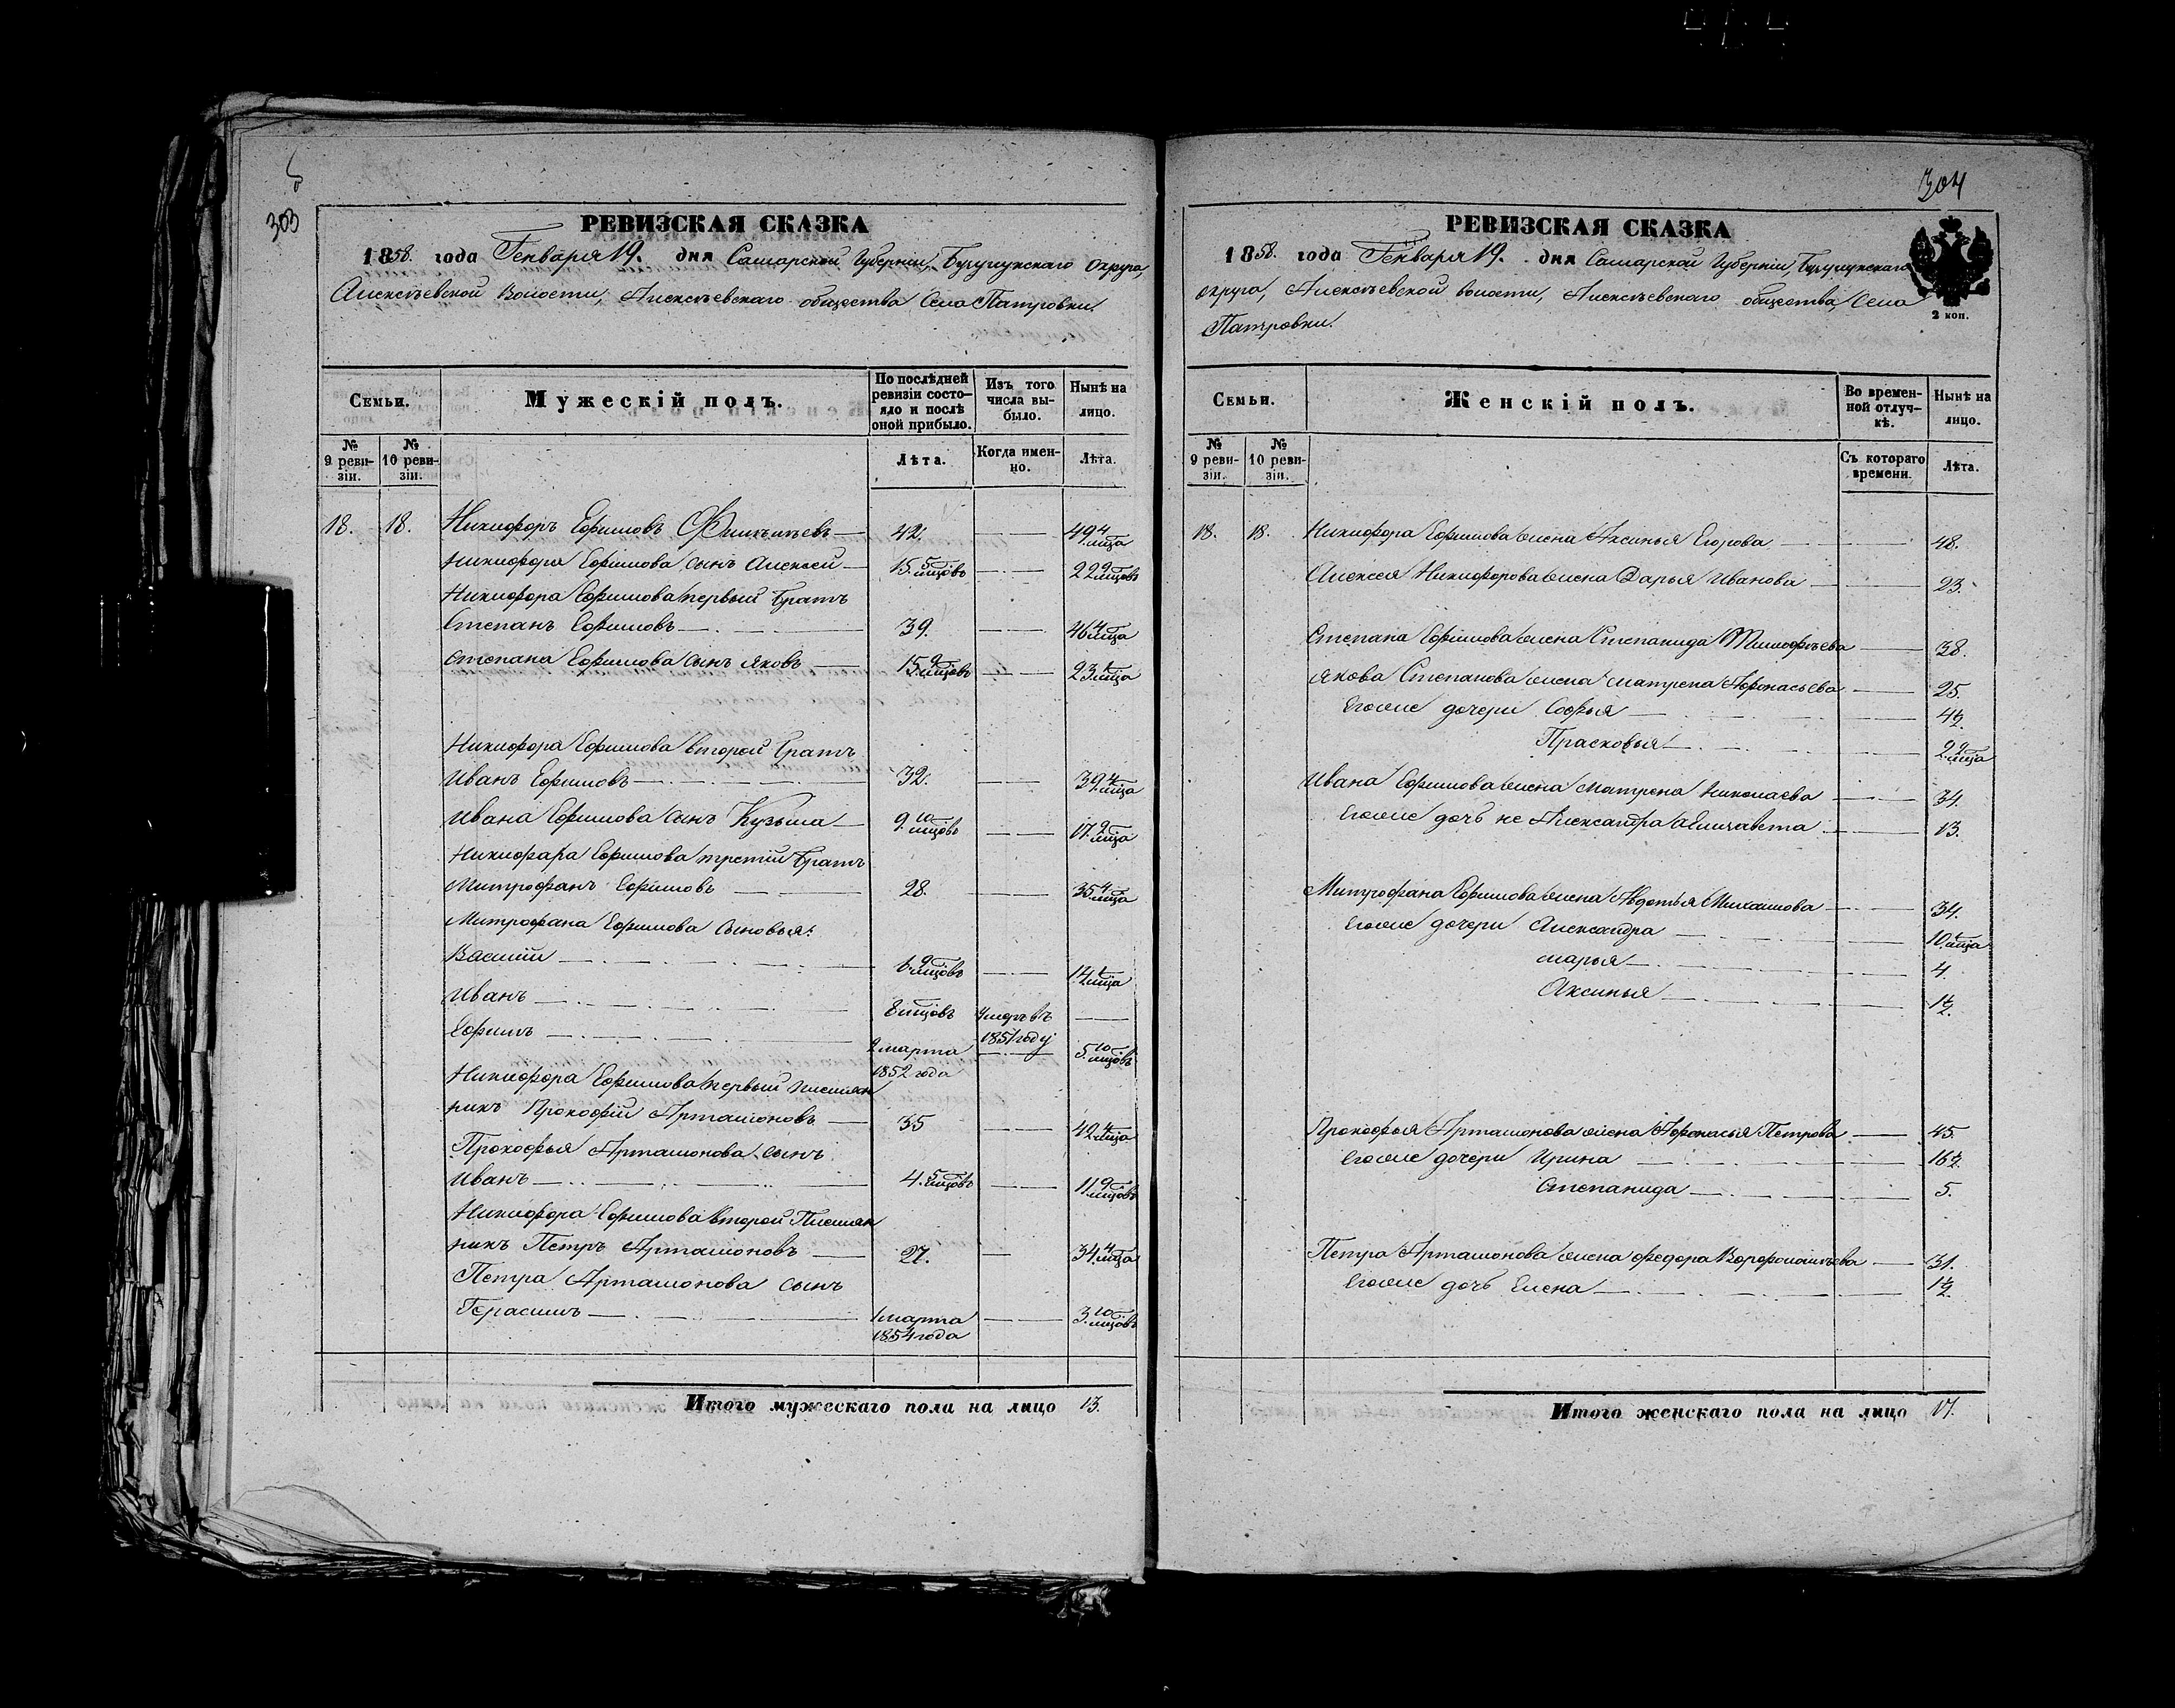 303
РЕВИЗСКАЯ СКАЗКА
1858. года Генваря 19. дня Самарской Губернии, Бузулукскаго Округа,
Алексѣевской Волости, Алексѣевскаго общества Села Патровки.
Семьи.
Мужескій полъ.
По послѣдней ревизіи состояло и послѣ оной прибыло.
Изъ того числа выбыло.
Нынѣ на лицо.
№ 9 ревизіи.
№ 10 ревизіи.
Лѣта.
Когда именно.
Лѣта.
18. 18. Никифоръ Ефимовъ 42. 49 4/мца
Никифора Ефимова сынъ Алексей 15. 5/мцовъ 22 9/мцовъ
Никифора Ефимова первый братъ
Степанъ Ефимовъ 39. 46 4/мца
Степана Ефимова сынъ Яковъ 15. 9/мцовъ 23 1/мца
Никифора Ефимова второй братъ
Иванъ Ефимовъ 32. 39 4/мца
Ивана Ефимова сынъ Кузьма 9. 10/мцовъ 17. 2/мца
Никифара Ефимова третий братъ
Митрофанъ Ефимовъ 28. 35 4/мца
Митрофана Ефимова сыновья:
Василий 6. 9/мцовъ 14. 1/мца
Иванъ 8 мцовъ умеръ въ 1851 году
Ефимъ 2 марта 1852 года 5. 10/мцовъ
Никифора Ефимова первый племян
никъ Прокофий Артамоновъ 35 42 4/мца
Прокофья Артамонова сынъ
Иванъ 4. 5/мцовъ 11. 9/мцовъ
Никифора Ефимова второй Племян
никъ Петръ Артамоновъ 27. 34 4/мца
Петра Артамонова сынъ
Герасимъ 1 марта 1854 года 3. 10/мцовъ
Итого мужескаго пола на лицо 13.
304
РЕВИЗСКАЯ СКАЗКА
1858. года Генваря 19. дня Самарской Губернии, Бузулукскаго
округа, Алексѣевской волости, Алексѣевскаго общества, Села
Патровки.
2 коп.
Семьи.
Женскій полъ.
Во временной отлучкѣ.
Нынѣ на лицо.
№ 9 ревизіи.
№ 10 ревизіи.
Съ котораго времени.
Лѣта.
18. 18. Никифора Ефимова жена Аксинья Егорова 48.
Алексея Никифорова жена Дарья Иванова 23.
Степана Ефимова жена Степанида Тимофѣева 38.
Якова Степанова жена Матрена Афонасьева 25.
Егоже дочери Софья 4 1/2
Прасковья 2 2/мца
Ивана Ефимова жена Матрена Николаева 34.
Егоже дочь не Александра а Елизавета 13.
Митрофана Ефимова жена Авдотья Михаилова 34.
Егоже дочери Александра 10. 1/мца
Марья 4.
Аксинья 1 1/2
Прокофья Артамонова жена Афонасья Петрова 45.
Егоже дочери Ирина 16 1/2.
Степанида 5.
Петра Артамонова жена Федора 31.
Егоже дочь Елена 1 1/2
Итого женскаго пола на лицо 17.